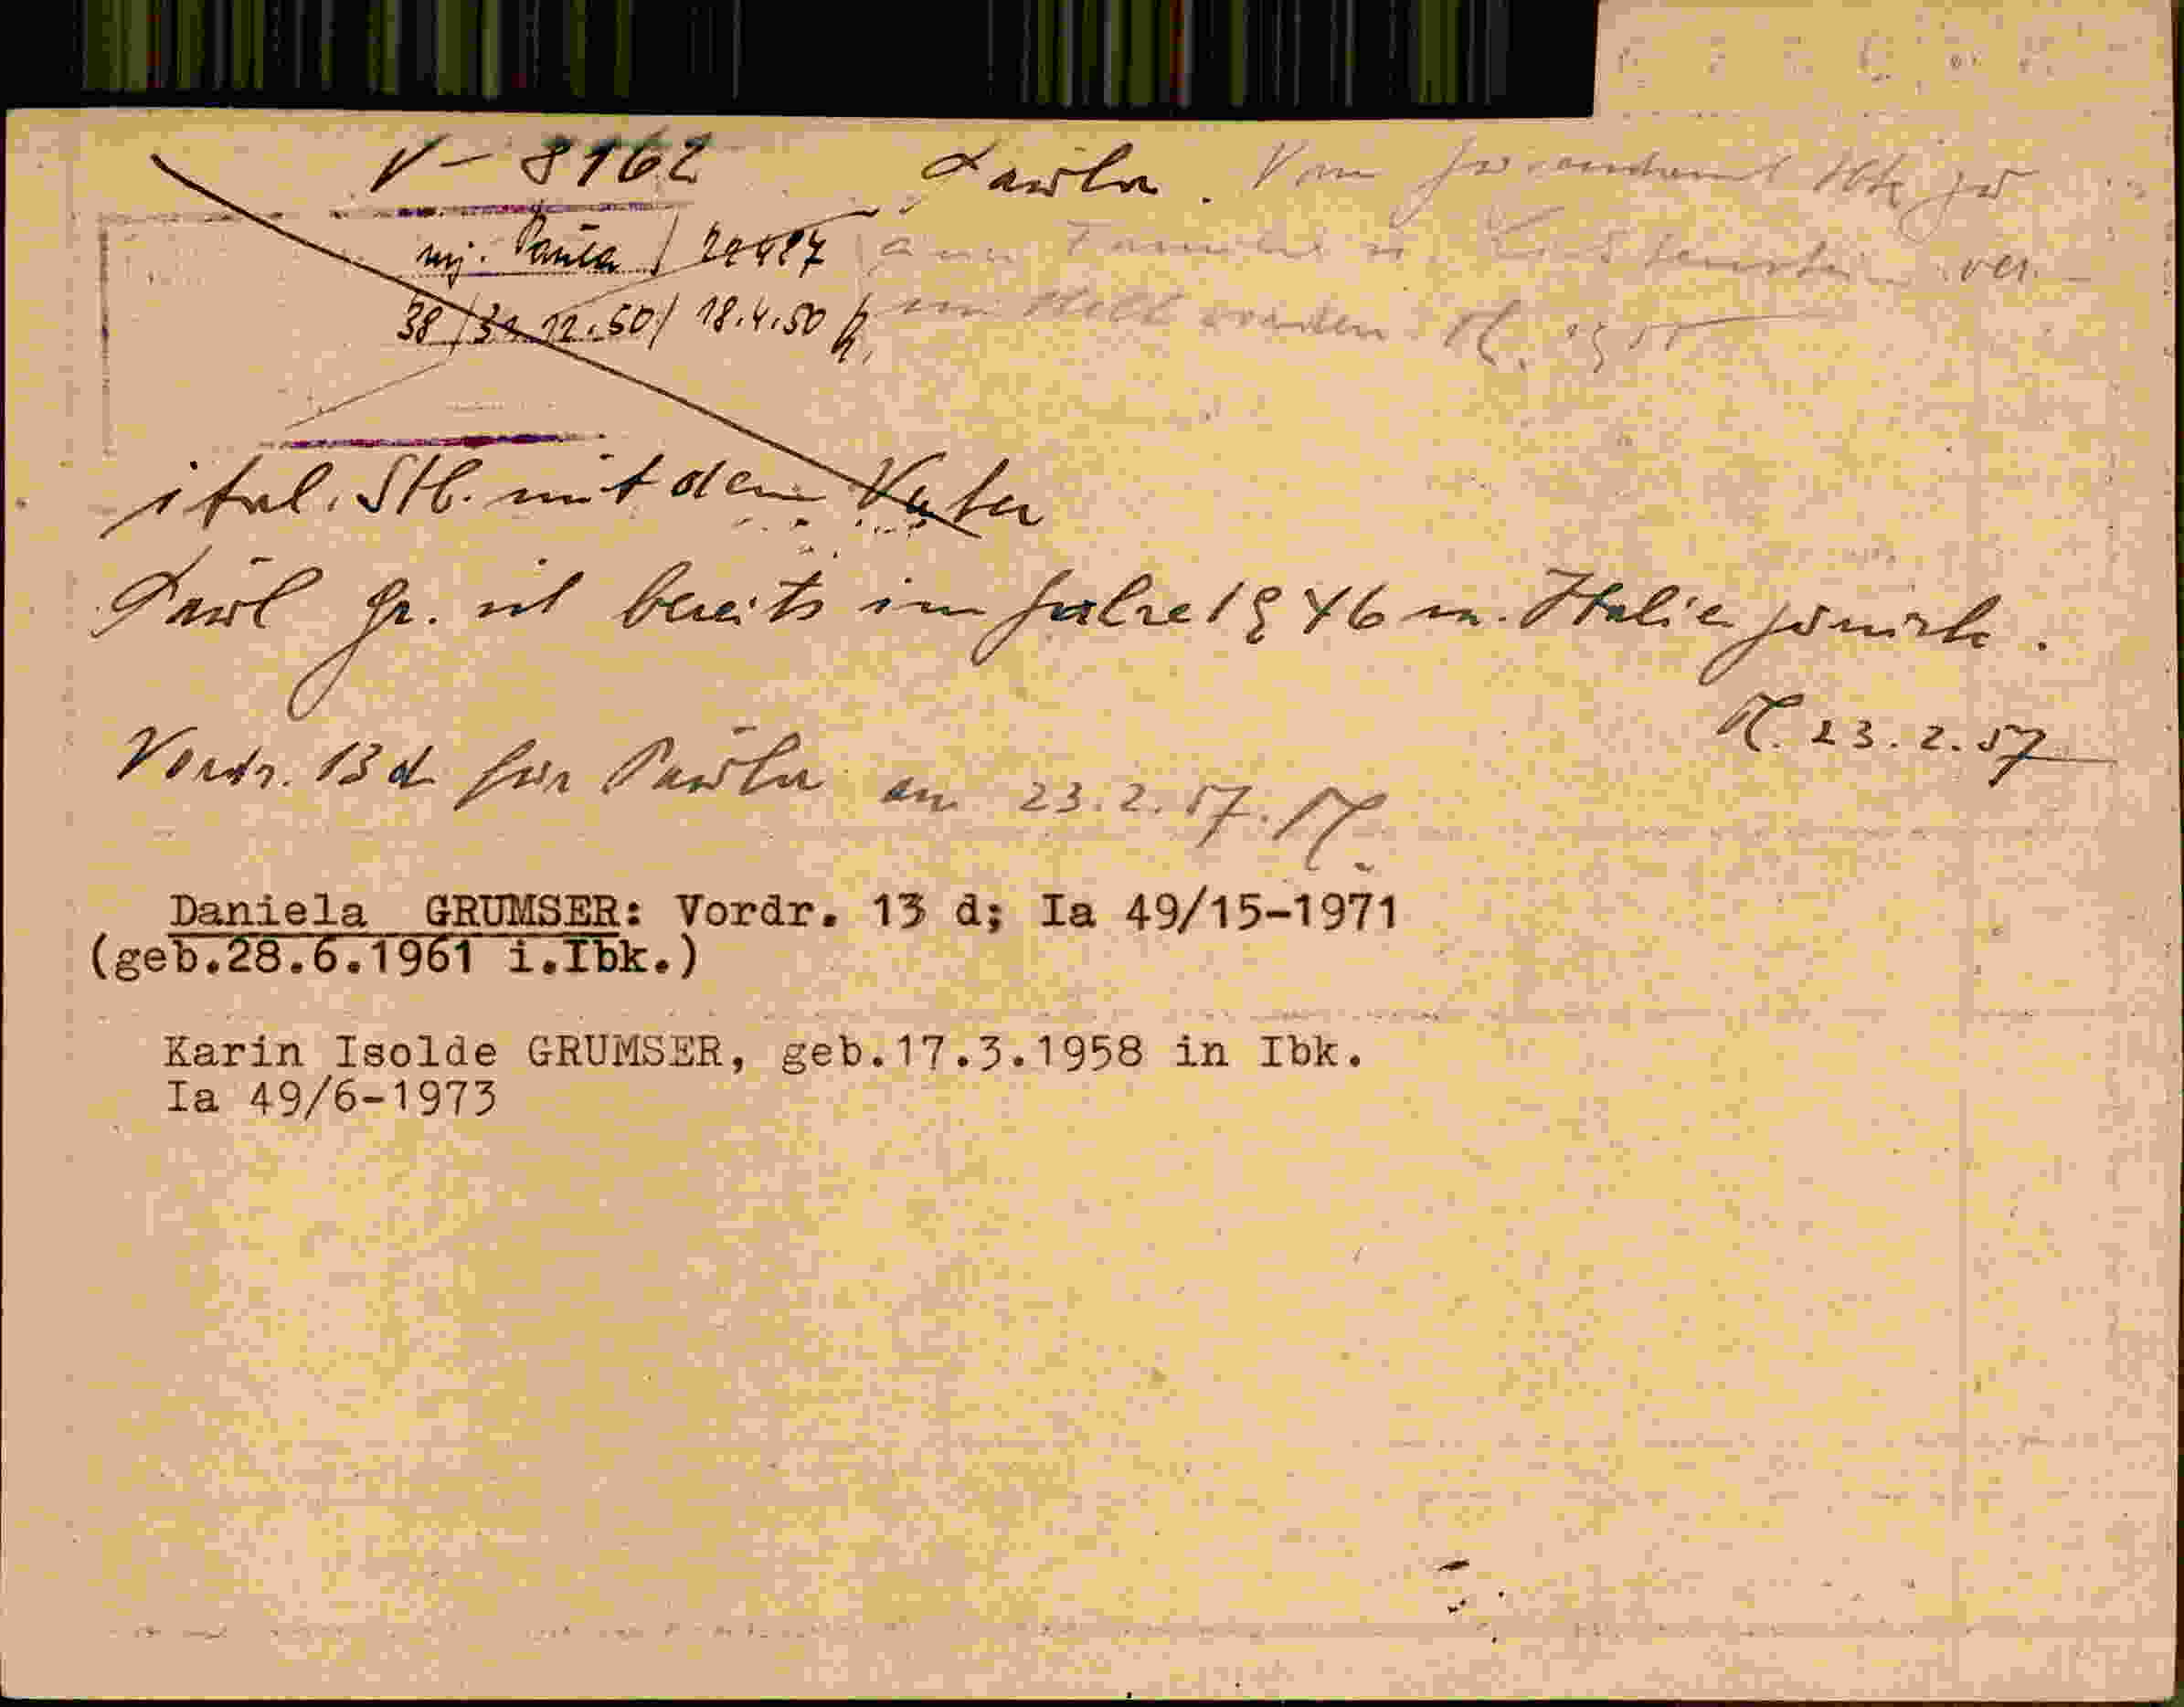 V - 8162
Paula. Vom Jugendamt Ibk zu
mj. Paula / 20487
einer Familie ver-
38 / 31.12.50 / 18.4.50
worden
ital. Stb. mit dem Vater
Paul Gr. ist bereits im Jahre 1946 n. Italien zurück.
23.2.57
Vordr. 13 d für Paula am 23.2.57.
Daniela GRUMSER: Vordr. 13 d; Ia 49/15-1971
(geb.28.6.1961 i.Ibk.)
Karin Isolde GRUMSER, geb.17.3.1958 in Ibk.
Ia 49/6-1973